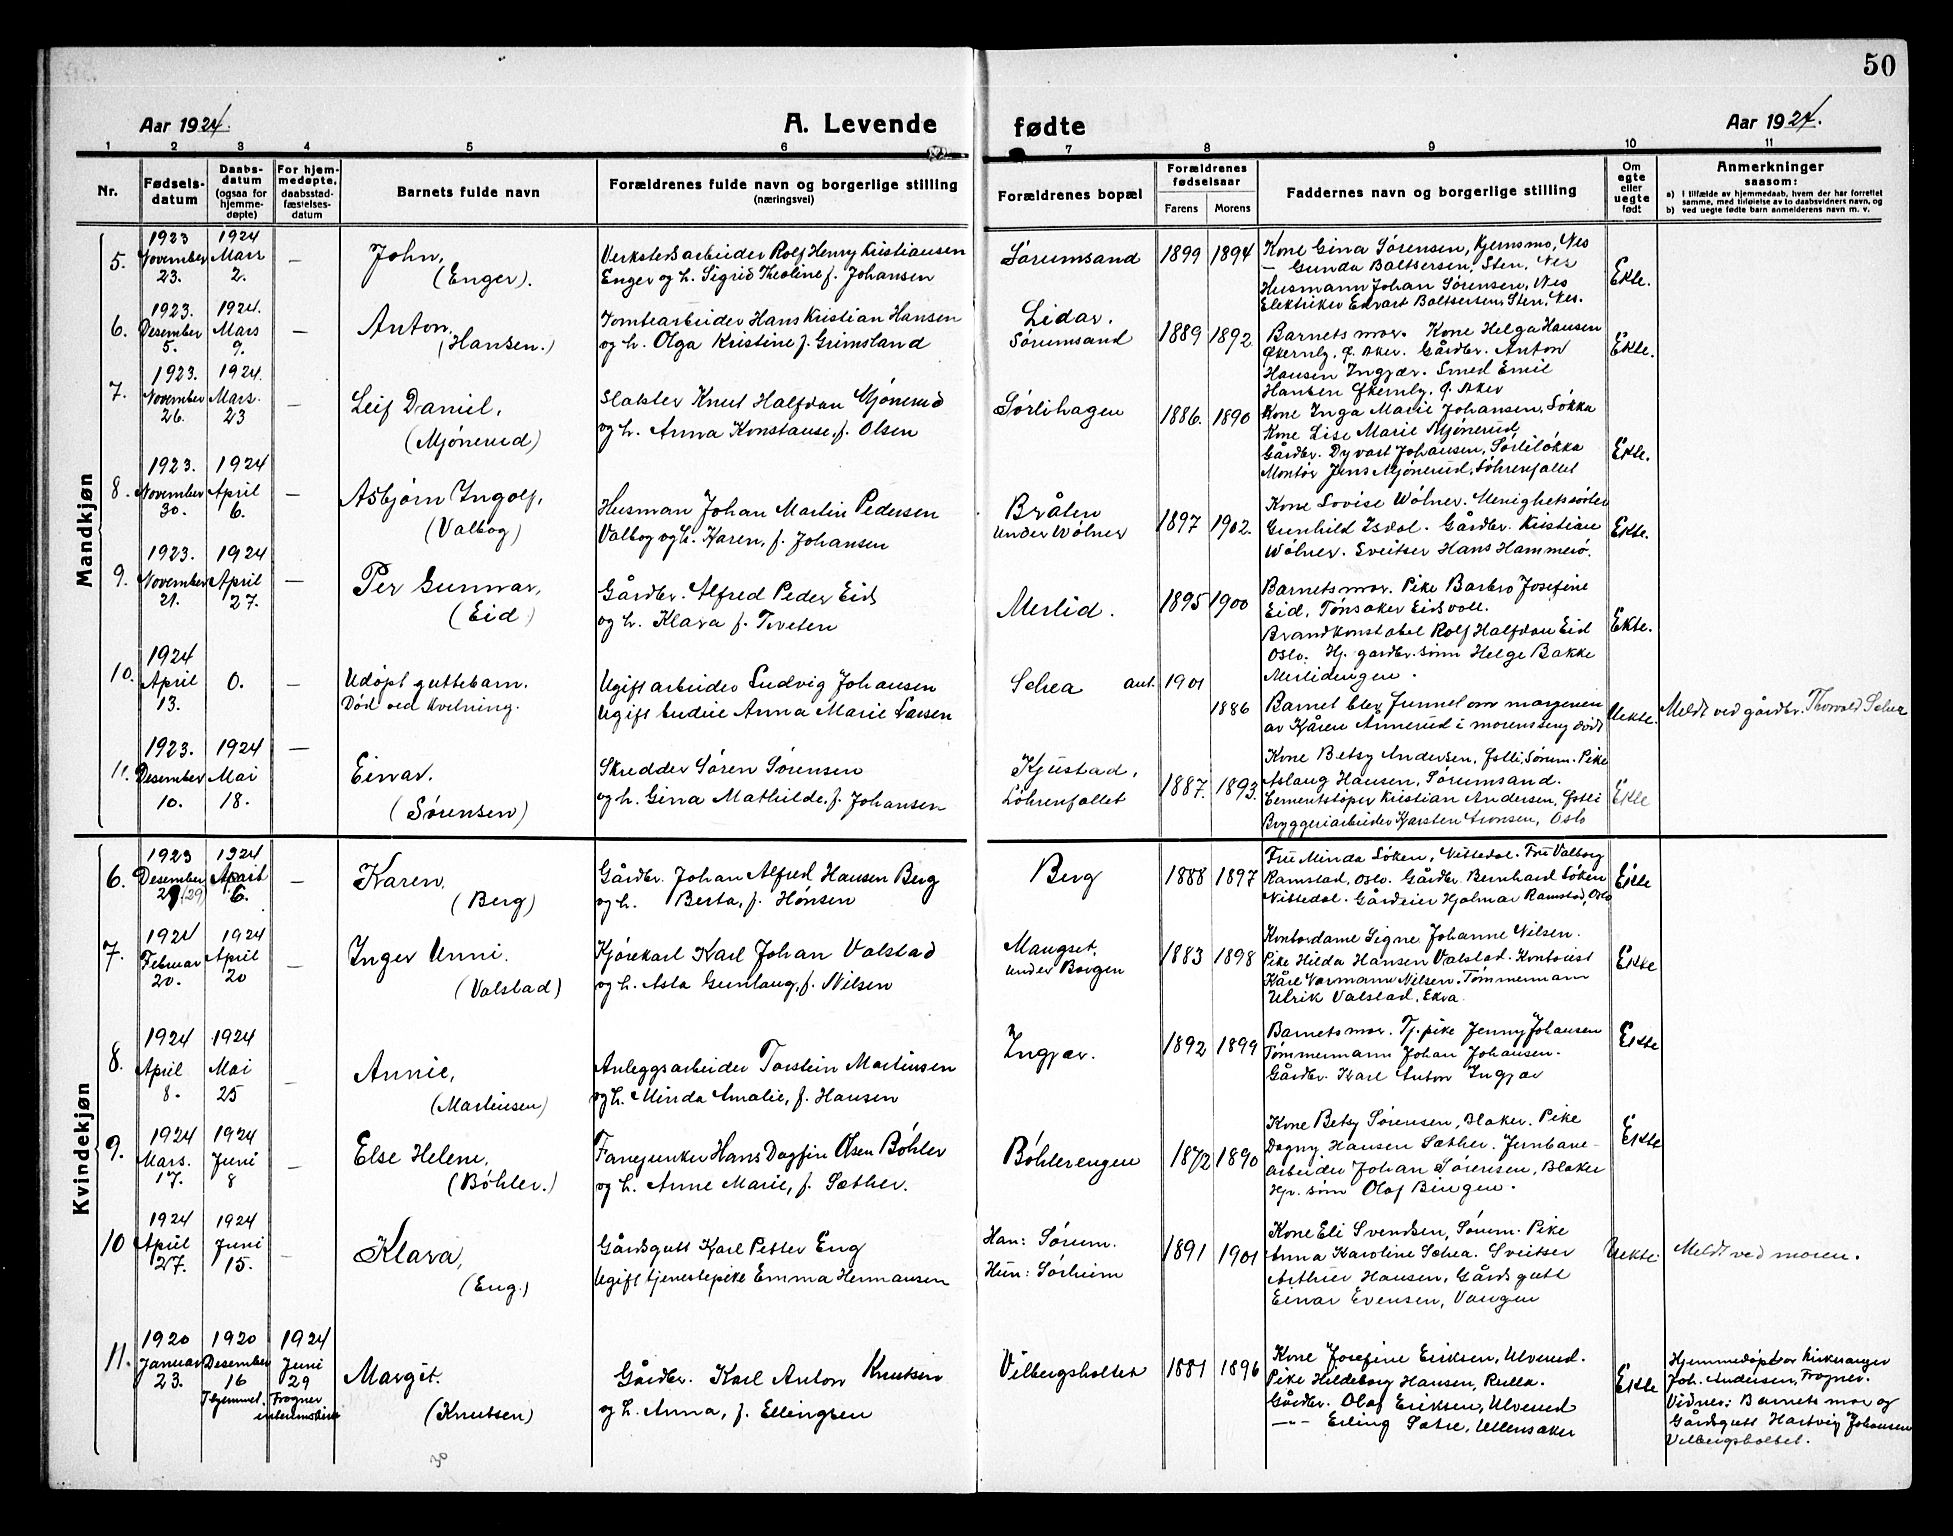 50
Aar 1924.
A. Levende
fødte
Aar 1924.
1 2 3 4 5 6 7 8 9 10 11
Nr.
Fødsels-
datum
Daabs-
datum
(ogsaa for
hjemme-
døpte)
For hjem-
medøpte,
daabsstad-
fæstelses-
datum
Barnets fulde navn
Forældrenes fulde navn og borgerlige stilling
(næringsvei)
Forældrenes bopæl
Forældrenes
fødselsaar
Farens Morens
Faddernes navn og borgerlige stilling
Om
egte
eller
uegte
født
Anmerkninger
saasom:
a) i tilfælde av hjemmedaab, hvem der har forrettet
samme, med tilføielse av to daabsvidners navn, og
b) ved uegte fødte barn anmelderens navn m. v.
Mandkjøn
5.
1923
November
23.
1924
Mars
2.
—
John,
(Enger).
Verkstedsarbeider Rolf Henry Kristiansen
Enger og h. Sigrid Theoline f. Johansen
Sørumsand
1899 1894
Kone Gina Sørensen, Hjemsmo, Nes
— Gunda Baltsersen, Sten, Nes
Husmann Johan Sørensen, Nes
Elektriker Edvart Baltsersen, Sten, Nes.
Ekte.
6.
1923.
Desember
5.
1924.
Mars
9.
—
Anton,
(Hansen.)
Tomtearbeider Hans Kristian Hansen
og h. Olga Kristine f. Grimsland
Lidar.
Sørumsand
1889 1892
Barnets mor. Kone Helga Hansen
Økernly, Ø. Aker. Gårdbr. Anton
Hansen Ingjær. Smed Emil
Hansen Økernly, Ø. Aker
Ekte.
7.
1923.
November
26.
1924.
Mars.
23
—
Leif Daniel,
(Mjönerud)
Slakter Knut Halfdan Mjönerud
og h. Anna Konstanse, f. Olsen
Sørlihagen
1886. 1890
Kone Inga Marie Johansen, Løkka
Kone Lise Marie Mjönerud,
Gårdbr. Dyvart Johansen, Sørliløkka
Montør Jens Mjönerud, Löhrenfallet
Ekte.
8.
1923.
November
30.
1924
April
6.
—
Asbjørn Ingolf,
(Valbog)
Husman Johan Martin Pedersen
Valbog og h. Karen, f. Johansen
Bråten
under Wölner
1897 1902.
Kone Lovise Wölner. Menighetssøster
Gunhild Isdal. Gårdbr. Kristian
Wölner. Sveitser Hans Hammerø.
Ekte.
9.
1923.
November
21.
1924
April
27.
—
Per Gunnar,
(Eid)
Gårdbr. Alfred Peder Eid
og h. Klara f. Tveten
Merlid.
1895 1900
Barnets mor. Pike Barbro Josefine
Eid, Tønsaker Eidsvoll.
Brandkonstabel Rolf Halfdan Eid
Oslo. Hj. gardbr. sønn Helge Bakke
Merlidengen.
Ekte.
10.
1924
April
13.
0.
—
Udöpt guttebarn.
Död ved kvelning.
Ugift arbeider Ludvig Johansen
Ugift budeie Anna Marie Larsen
Selsea ant. 1901
1886
Barnet blev funnet om morgenen
av Kåren Annerud i morens seng dødt
Uekte.
Meldt ved gårdbr. Thorvald Selsea
11.
1923.
Desember
10.
1924
Mai
18.
—
Einar.
(Sørensen)
Skredder Sören Sörensen
og h. Gina Mathilde, f. Johansen
Kjustad,
Löhrenfallet
1887. 1893.
Kone Betsy Andersen, Østli, Sörum. Pike
Aslaug Hansen, Sörumsand.
Cementstöper Kristian Andersen, Østli
Bryggeriarbeider Karsten Aronsen, Oslo
Ekte
Kvindekjøn
6.
1923
Desember
29 (29)
1924
April
6.
—
Karen,
(Berg)
Gårdbr. Johan Alfred Hansen Berg
og h. Berta, f. Hönsen
Berg
1888 1897
Fru Minda Löken, Nittedal. Fru Valborg
Ramstad, Oslo. Gårdbr. Bernhard Löken
Nittedal. Gårdeier Hjalmar Ramstad, Oslo
Ekte
7.
1924
Februar
20.
1924
April
20
—
Inger Unni.
(Valstad)
Kjörekarl Karl Johan Valstad
og h. Asta Gunlaug, f. Nilsen
Maugset.
under Borgen
1883 1898
Kontordame Signe Johanne Nilsen.
Pike Hilda Hansen Valstad. Kontorist
Kåre Normann Nilsen. Tømmermann
Ulrik Valstad, Ekra
Ekte
8.
1924
April
8.
1924
Mai
25
—
Annie,
(Martinsen)
Anleggsarbeider Torstein Martinsen
og h. Minda Amalie, f. Hansen
Ingjær.
1892 1899
Barnets mor. Tj. pike Jenny Johansen
Tømmermann Johan Johansen.
Gårdbr. Karl Anton Ingjær
Ekte
9.
1924
Mars.
17.
1924
Juni
8
—
Else Helene,
(Böhler.)
Fanejunker Hans Dagfin Olsen Böhler
og h. Anne Marie, f. Sæther.
Böhlerengen
1872 1890
Kone Betsy Sørensen, Blaker. Pike
Dagny Hansen Sæther. Jernbane-
arbeider Johan Sørensen, Blaker
Hjr. sønn Olaf Bingen.
Ekte
10
1924
April
27.
1924
Juni
15.
—
Klara,
(Eng.)
Gårdsgutt Karl Petter Eng
Ugift tjenestepike Emma Hermansen
Han: Sørum.
Hun: Sørheim
1891 1901
Kone Eli Svendsen, Sørum. Pike
Anna Karoline Sælsea. Sveitser
Arthur Hansen, Gårdsgutt
Einar Evensen, Vangen
Uekte.
Meldt ved moren.
11.
1920
Januar
23.
1920
Desember
16
Thjemmet.
1924
Juni
29
Frogner
interimskirke
Margit.
(Knutsen)
Gårdbr. Karl Anton Knutsen
og h. Anna, f. Ellingsen
Vilbergsholtet
1881 1896
Kone Josefine Eriksen, Ulverud.
Pike Hildeborg Hansen, Rulla.
Gårdbr. Olaf Eriksen, Ulverud
—"— Erling Sætre, Ullensaker
Ekte
Hjemmedöpt av Kirkesanger
Joh. Andersen, Frogner.
Vidner: Barnets mor og
Gårdsgutt Hartvig Johansen
Vilbergsholtet.
30